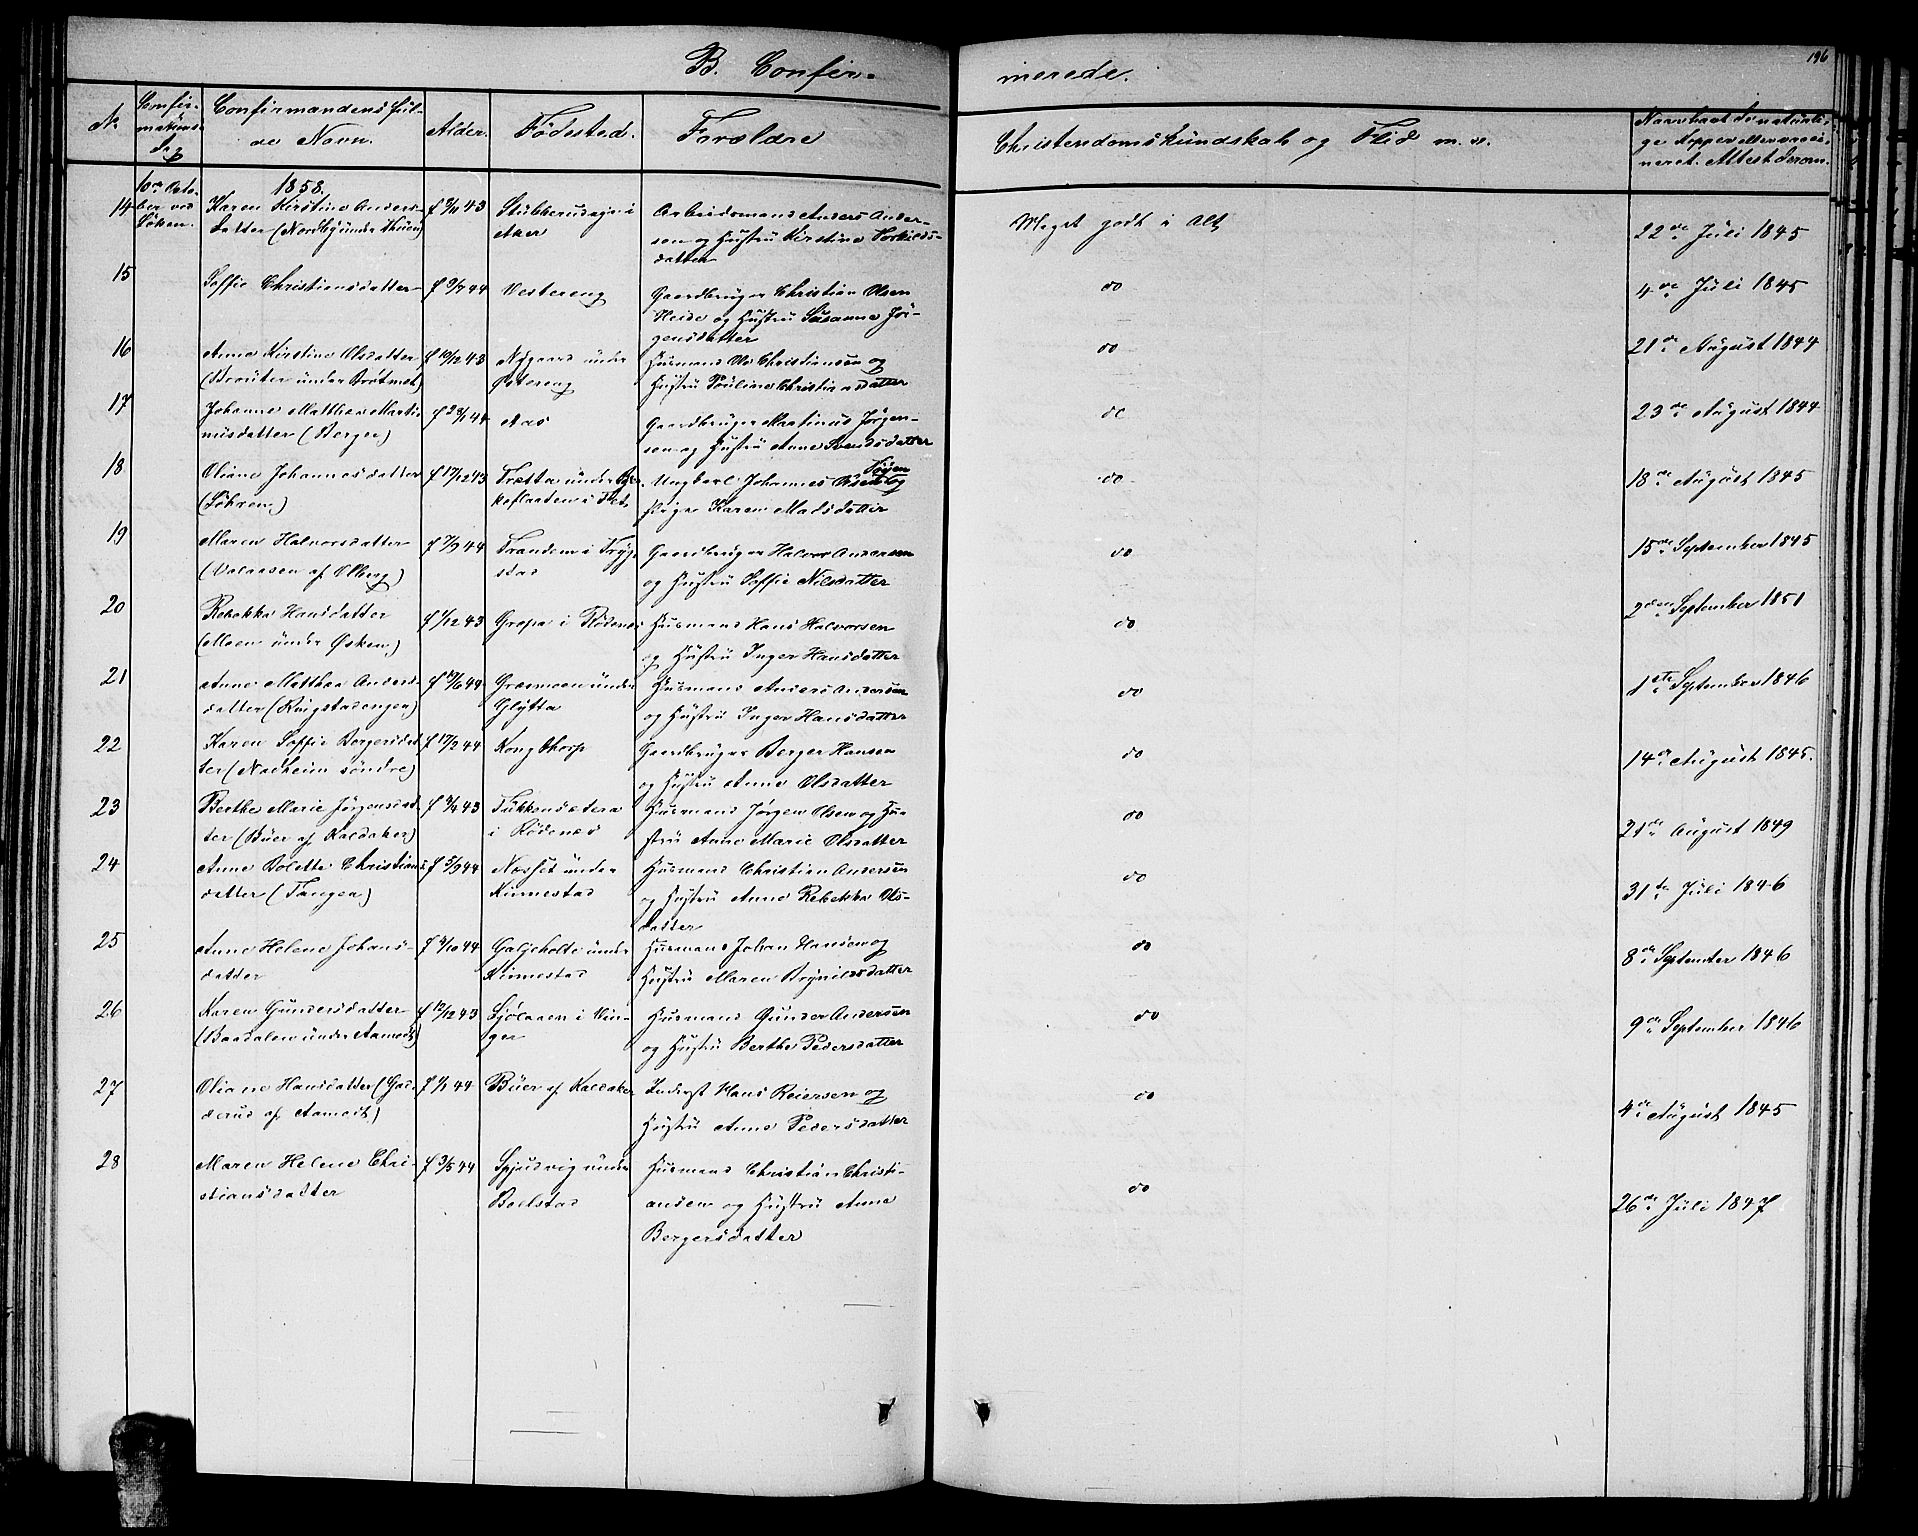 B. Confir-
merede.
196
No
Confir-
mations-
dag
Confirmandens ful-
de Navn.
Alder.
Fødested.
Forældre
Christendomskundskab og Flid m. v.
Naar havt de naturli-
ge Kopper eller vacci-
neret. Attest derom.
10de Octo-
ber ved
1858.
14
Karen Kirstine Anders-
datter
f
43
i
Aker
Arbeidsmand Anders Ander-
sen og Hustru Kirstine
datter
Meget godt i Alt
22de Juli 1845
15
Soffie Christiansdatter
f 9/7 44
Vestereng
Gaardbruger Christian Olsen
Heide og Hustru Susanne Jør-
gensdatter
do
4de Juli 1845
16
Anne Kirstine Olsdatter
f 19/12 43
Nygaard under
Østereng
Husmand Ole Christiansen og
Hustru Pouline Christiansdatter
do
21de August 1844
17
Johanne Mathea Marti-
nusdatter (Berger)
f 28/1 44
Aas
Gaardbruger Martinus Jørgen-
sen og Hustru Anne Svendsdatter
do
23de August 1844
18
Oliane Johannesdatter
f 17/12 43
Trætta under
i
Ungkarl Johannes Olsen og
Pige Karen Madsdatter
do
18de August 1845
19
Maren Halvorsdatter
f 7/9 44
Trandem i Tryg-
stad
Gaardbruger Halvor Andersen
og Hustru Soffie Nilsdatter
do
15de September 1845
20
Rebekka Hansdatter
(Moen under Øsken)
f 1/12 43
Grepa i Rødenes
Husmand Hans Halvorsen
og Hustru Inger Hansdatter
do
2den September 1851
21
Anne Mathea Anders-
datter (Krigstadengen)
f 19/6 44
Græsmoen under
Glytta
Husmand Anders Andersen
og Hustru Inger Hansdatter
do
1ste September 1846
22
Karen Soffie Bergersdat-
ter (Nadheim søndre)
f 17/2 44
Kongthorp
Gaardbruger Berger Hansen
og Hustru Anne Olsdatter
do
14de August 1845.
23
Berthe Marie Jørgensdat-
ter (Buer af Kaldaker)
f 3/4 43
Tukkensætera
i Rødenæs
Husmand Jørgen Olsen og Hu-
stru Anne Marie Olsdatter
do
21de August 1849
24
Anne Dolette Christians-
datter (Tangen)
f 5/9 44
Næsset under
Kinnestad
Husmand Christian Andersen
og Hustru Anne Rebekka Ols-
datter
do
31te Juli 1846
25
Anne Helene Johans-
datter
f 4/10 44
Galjeholte under
Kinnestad
Husmand Johan Hansen og
Hustru Maren Brynildsdatter
do
8de September 1846
26
Karen Gundersdatter
(Baadalen under Aamodt)
f 12/12 43
i Vin-
ger
Husmand Gunder Andersen
og Hustru Berthe Pedersdatter
do
9de September 1846
27
Oliane Hansdatter (Gad-
derud af Aamodt)
f 1/1 44
Buer af Kaldaker
Inderst Hans Reiersen og
Hustru Anne Pedersdatter
do
4de August 1845
28
Maren Helene Chri-
stiansdatter
f 3/5 44
Spjudvig under
Boelstad
Husmand Christian Christi-
ansen og Hustru Anne
Bergersdatter
do
26de Juli 1847